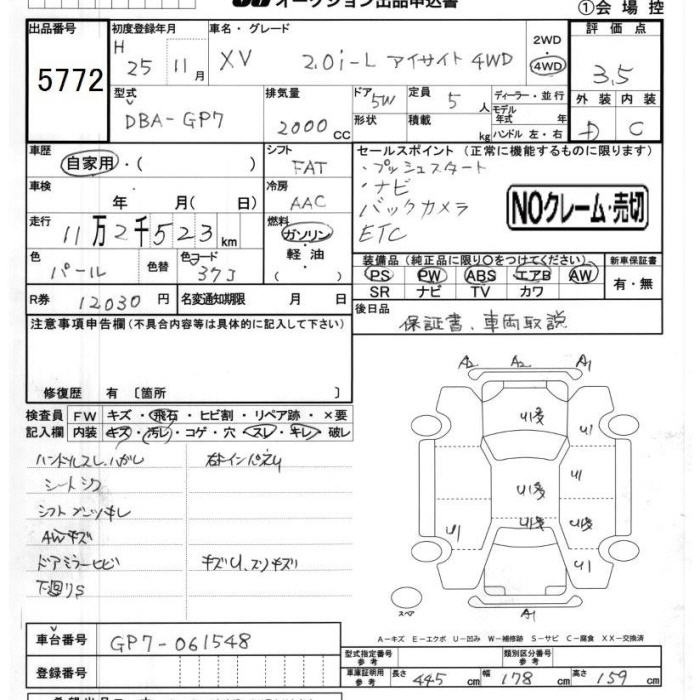 オークション出品申込書
①会場控
出品番号
5772
初度登録年月
H 25 11月
車名・グレード
XV 2.0i-L アイサイト 4WD
2WD
4WD
評価点
3.5
外装 内装
D C
型式
DBA-GP7
排気量
2000 CC
ドア 5W
形状
定員 5 人
積載 kg
ディーラー・並行
モデル年式 年
ハンドル 左・右
車歴
自家用・( )
シフト
FAT
セールスポイント (正常に機能するものに限ります)
・プッシュスタート
・ナビ
バックカメラ
ETC
NOクレーム・売切
車検
年 月( 日)
冷房
AAC
走行
11万2千523km
燃料
ガソリン
・軽油
( )
色
パール
色替
色コード
37J
装備品(純正品に限り○をつけてください)
PS PW ABS エアB AW
SR ナビ TV カワ
新車保証書
有・無
R券 12030円
名変通知期限 月 日
後日品
保証書、車両取説
注意事項申告欄(不具合内容等は具体的に記入して下さい)
修復歴 有 〔箇所 〕
検査員
記入欄
FW キズ・飛石・ヒビ割・リペア跡・×要
内装 キズ・汚レ・コゲ・穴・スレ・キレ・破レ
ハンドルスレ、ハガレ
シートシワ
AWキズ
ドアミラーヒビ
下廻りS
A2 A2 A1
U多
U1
U多
U1
U1
U多
U1
A1
スペア
A－キズ E－エクボ U－凹み W－補修跡 S－サビ C－腐食 XX－交換済
車台番号
GP7-061548
登録番号
型式指定番号
参考
類別区分番号
参考
車庫証明用
参考
長さ 445 cm
幅 178 cm
高さ 159 cm